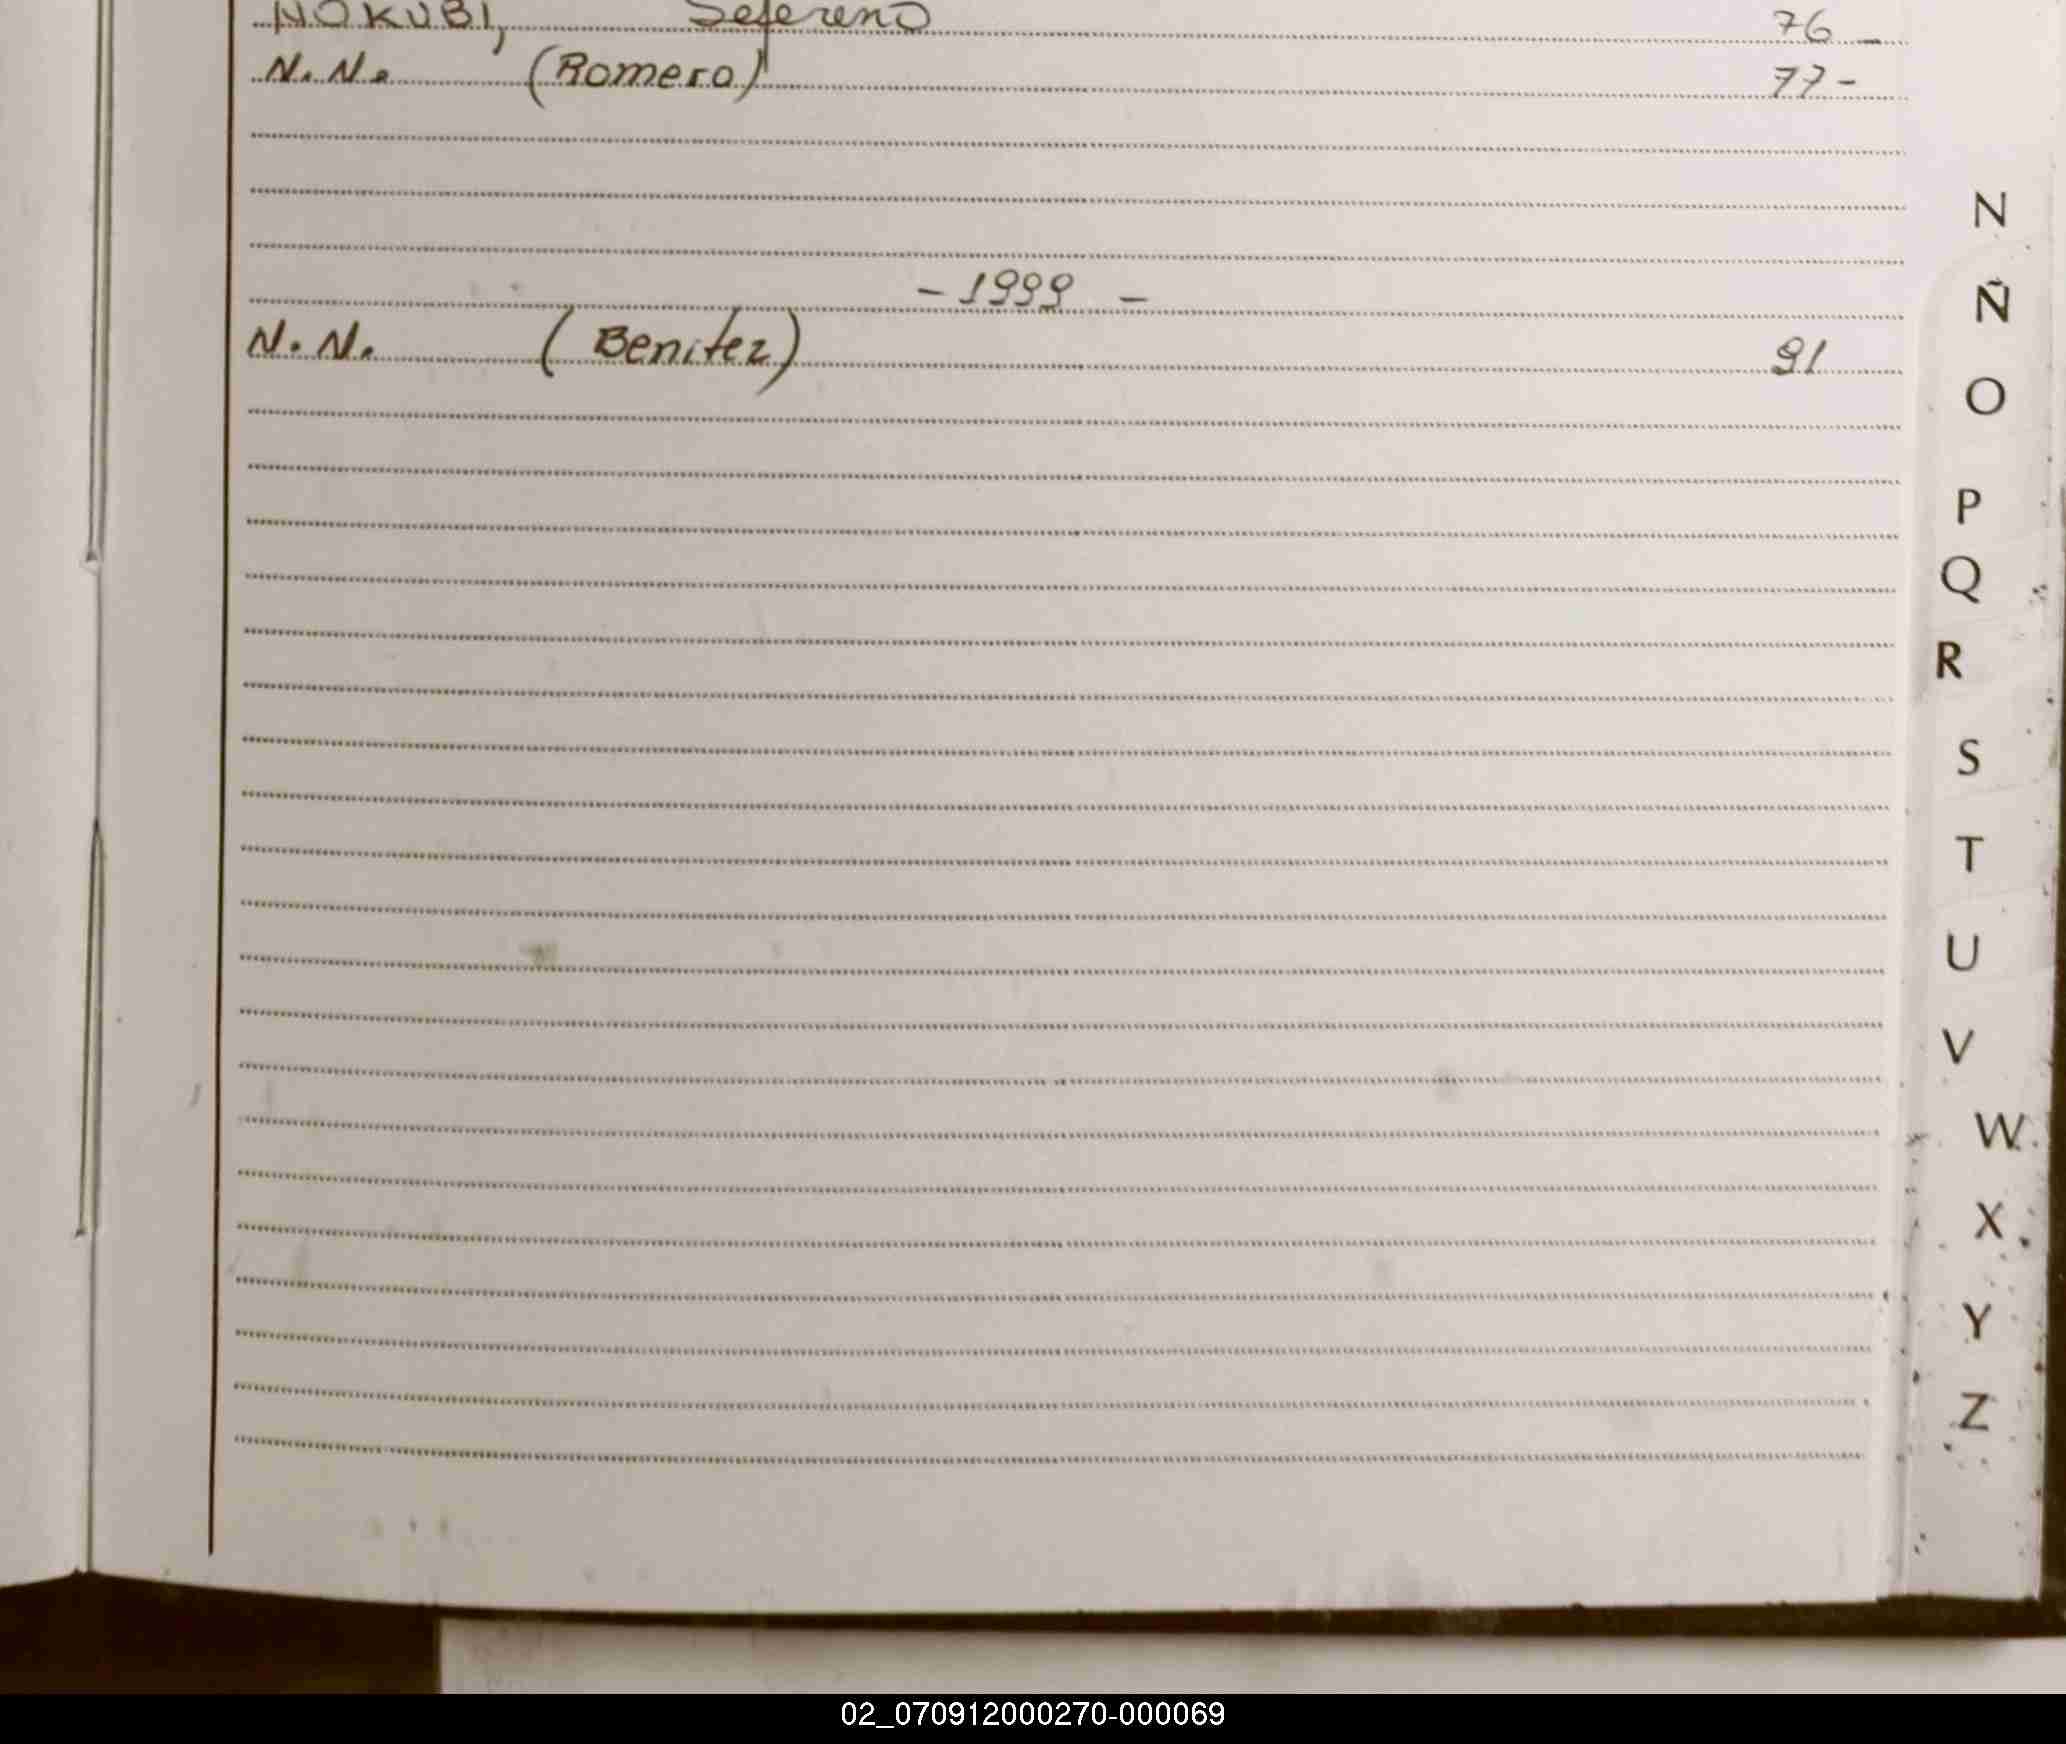 NOKUBI, Sefereno 76 -
N.N. (Romero) 77 -
- 1999 -
N.N. (Benitez) 91
N
Ñ
O
P
Q
R
S
T
U
V
W
X
Y
Z
02_070912000270-000069